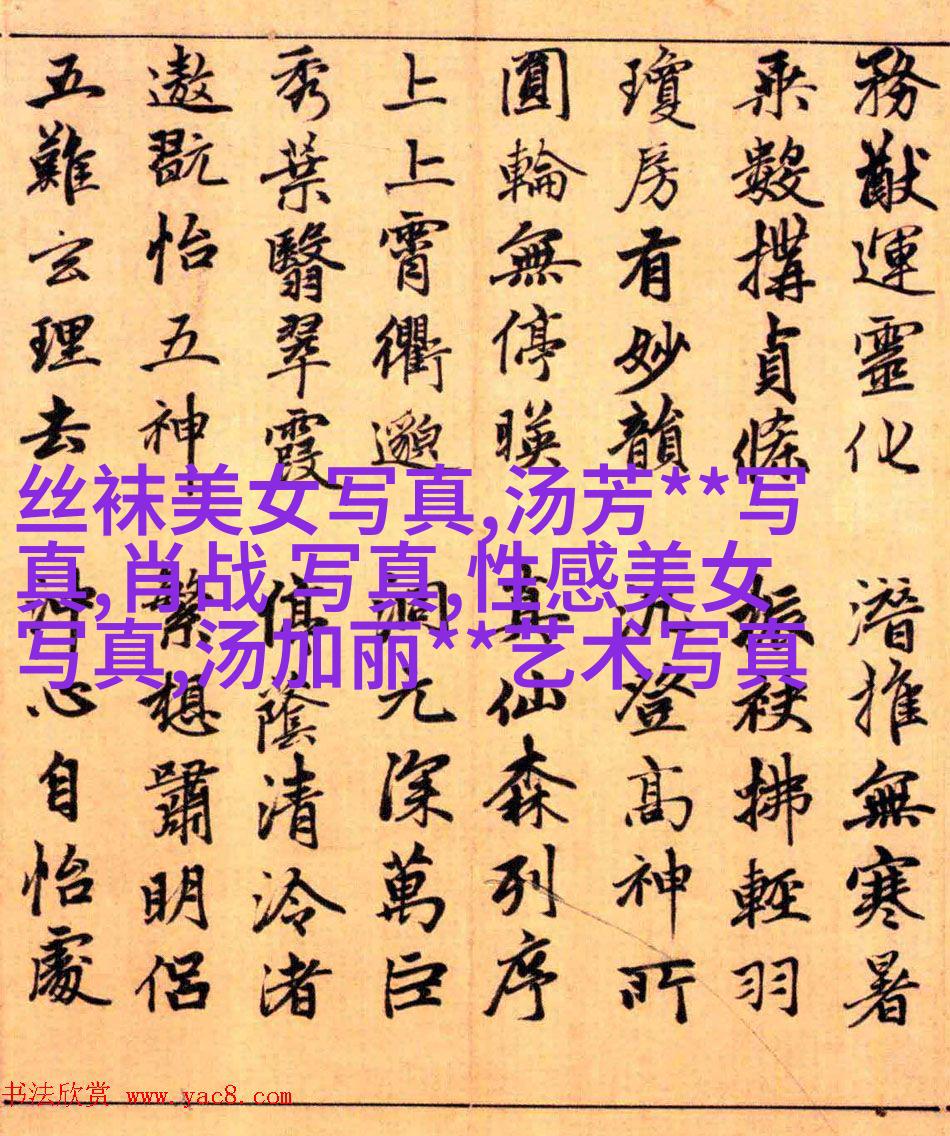 務猷運靈化 潛推無寒暑
乘數構貞條 振袂拂輕羽
瓊房有妙韻 登高神所
圓輪無停暎 真仙森列序
上上霄衢邈 洞元深萬巨
秀葉翳翠霞 停蔭清泠渚
遨翫怡五神 繁想嘯明侶
五難玄理去 心自怡處
丝袜美女写真,汤芳**写
真,肖战 写真,性感美女
写真,汤加丽**艺术写真
书法欣赏 www.yac8.com